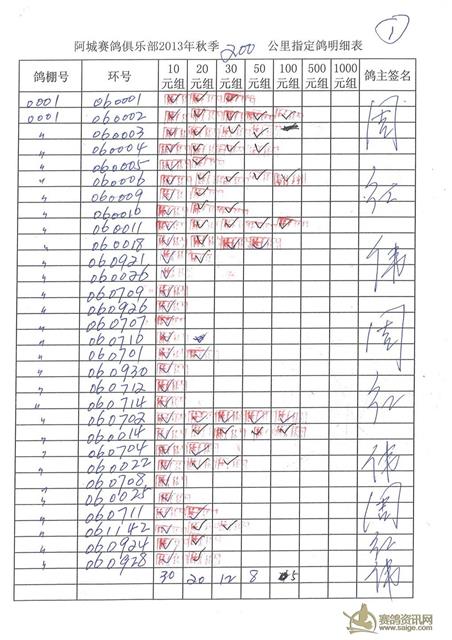 ①
阿城赛鸽俱乐部2013年秋季 200 公里指定鸽明细表
鸽棚号 环号 10元组 20元组 30元组 50元组 100元组 500元组 1000元组 鸽主签名
0001 060001
0001 060002
〃 060003
〃 060004
〃 060005
〃 060006
〃 060009
〃 060010
〃 060011
〃 060018
〃 060921
〃 060026
〃 060709
〃 060926
〃 060707
〃 060716
〃 060701
〃 060930
〃 060712
〃 060714
〃 060702
〃 060014
〃 060704
〃 060022
〃 060708
〃 060025
〃 060711
〃 061142
〃 060924
〃 060928
30 20 12 8 5
周
红
伟
周
红
伟
周
红
伟
赛鸽资讯网
www.saige.com